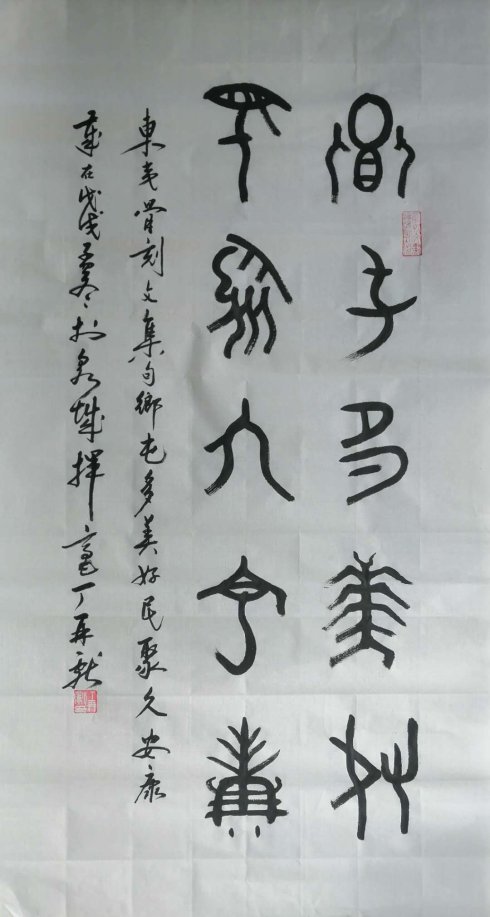 鄉屯多美好
民聚久安康
東夷骨刻文集句鄉屯多美好民聚久安康
歲在戊戌孟冬於泉城揮毫丁再献